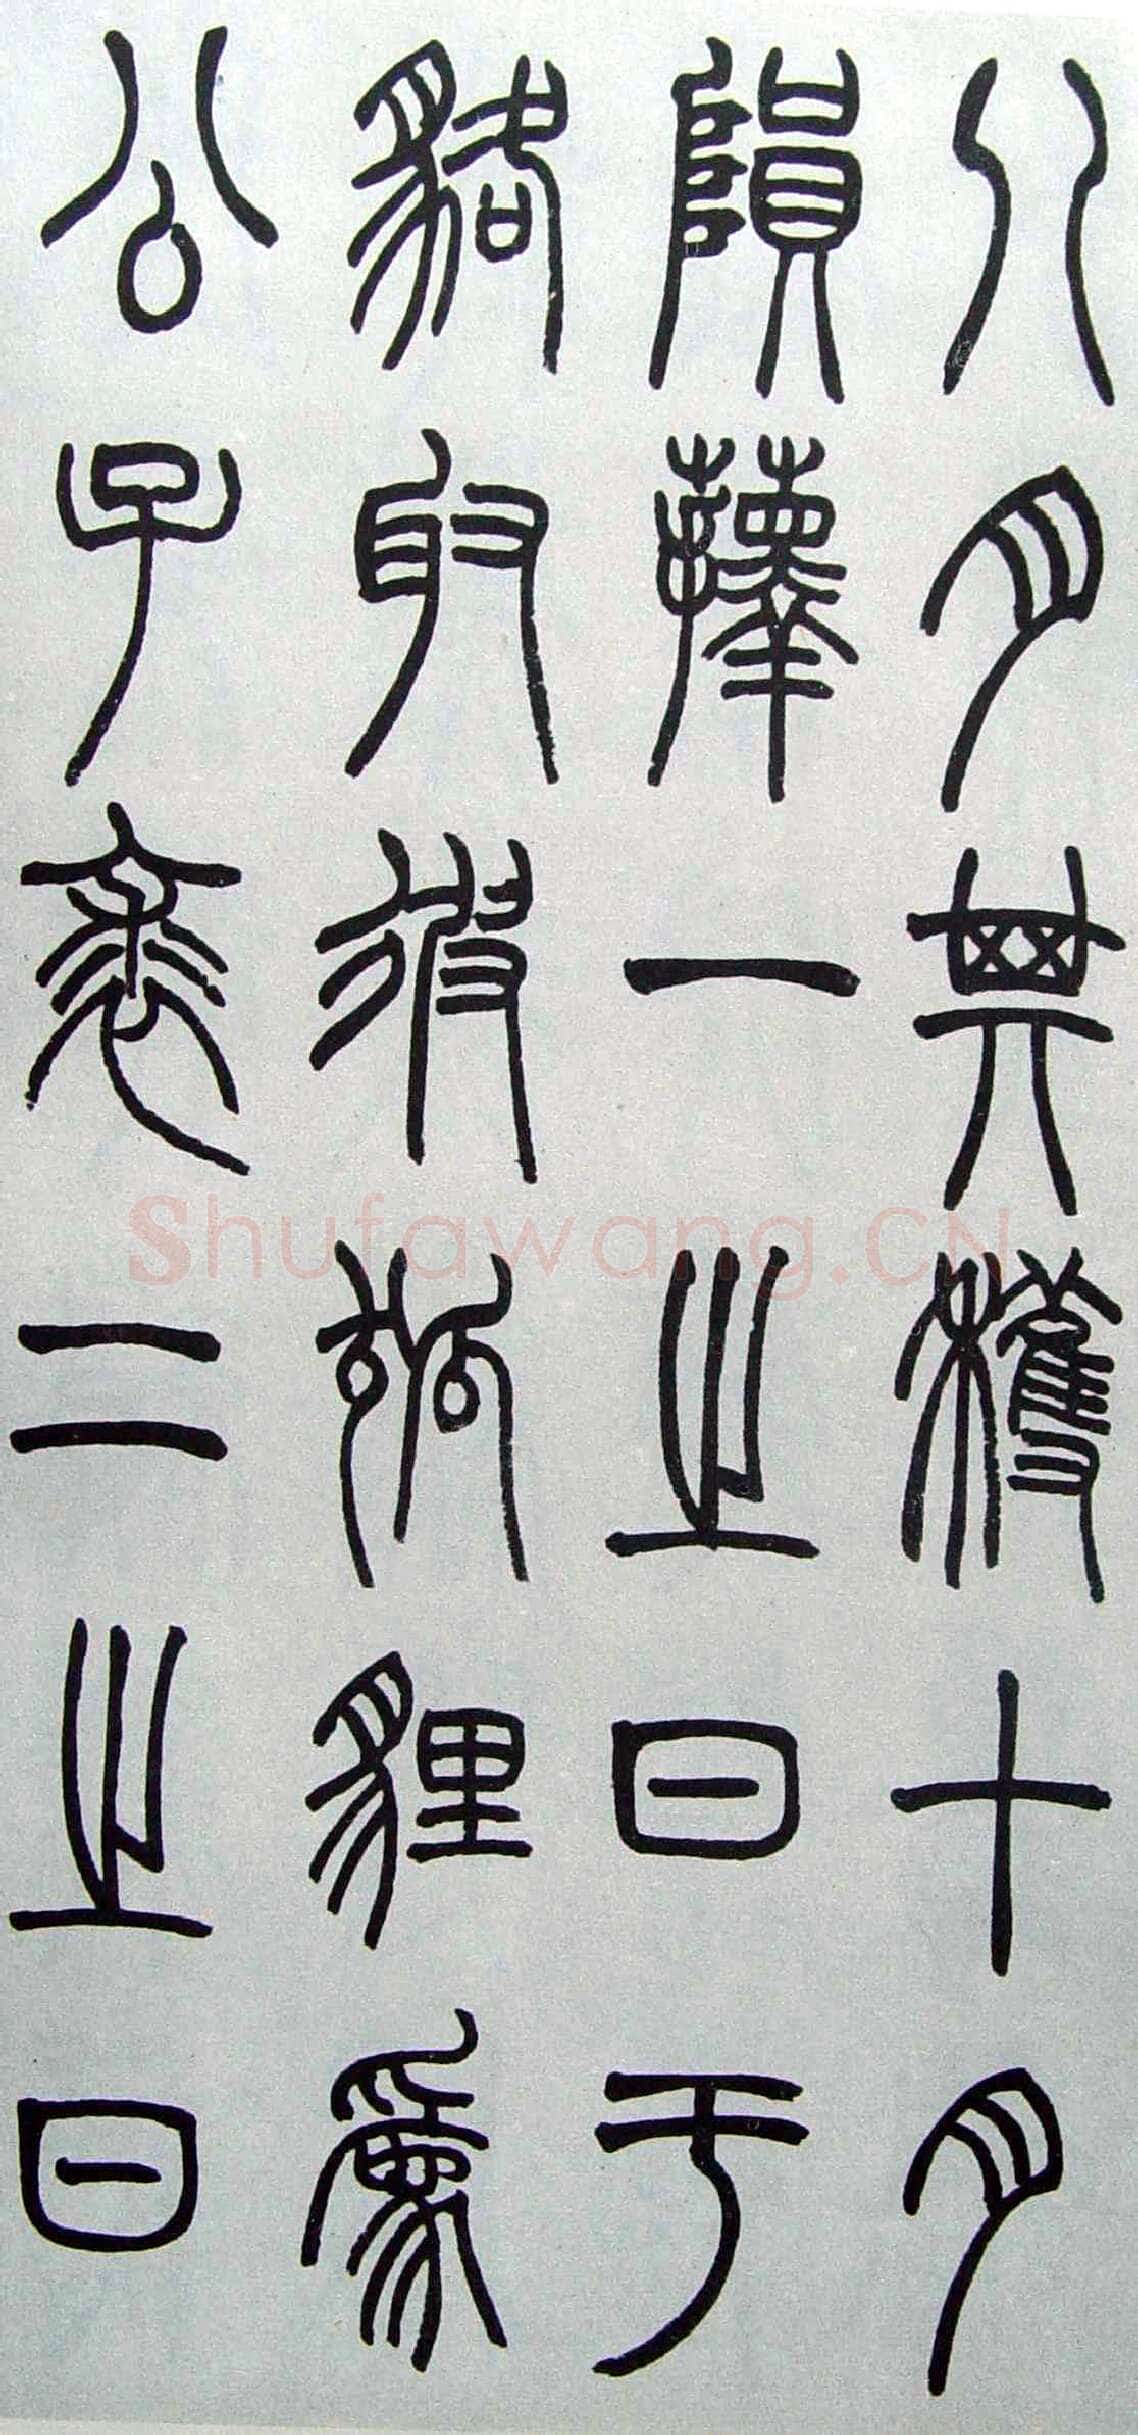 八月其穫十月
隕蘀一之日于
貉取彼狐貍爲
公子裘二之日
Shufawang.CN